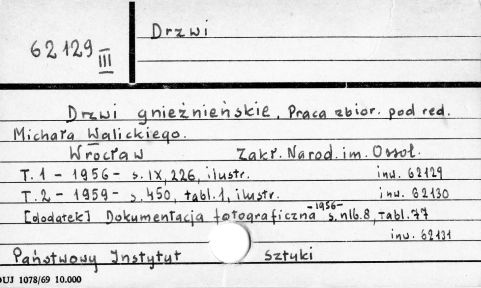 62129
III
Drzwi
Drzwi gnieźnieńskie, Praca zbior. pod red.
Michała Walickiego.
Wrocław Zakł. Narod. im. Ossol.
T. 1 - 1956 - s. IX, 226, ilustr. inw. 62129
T. 2 - 1959 - s. 450, tabl. 1, ilustr. inw. 62130
[dodatek] Dokumentacja fotograficzna -1956- s. nlb. 8, tabl. 77
inw. 62131
Państwowy Instytut Sztuki
DUJ 1078/69 10.000